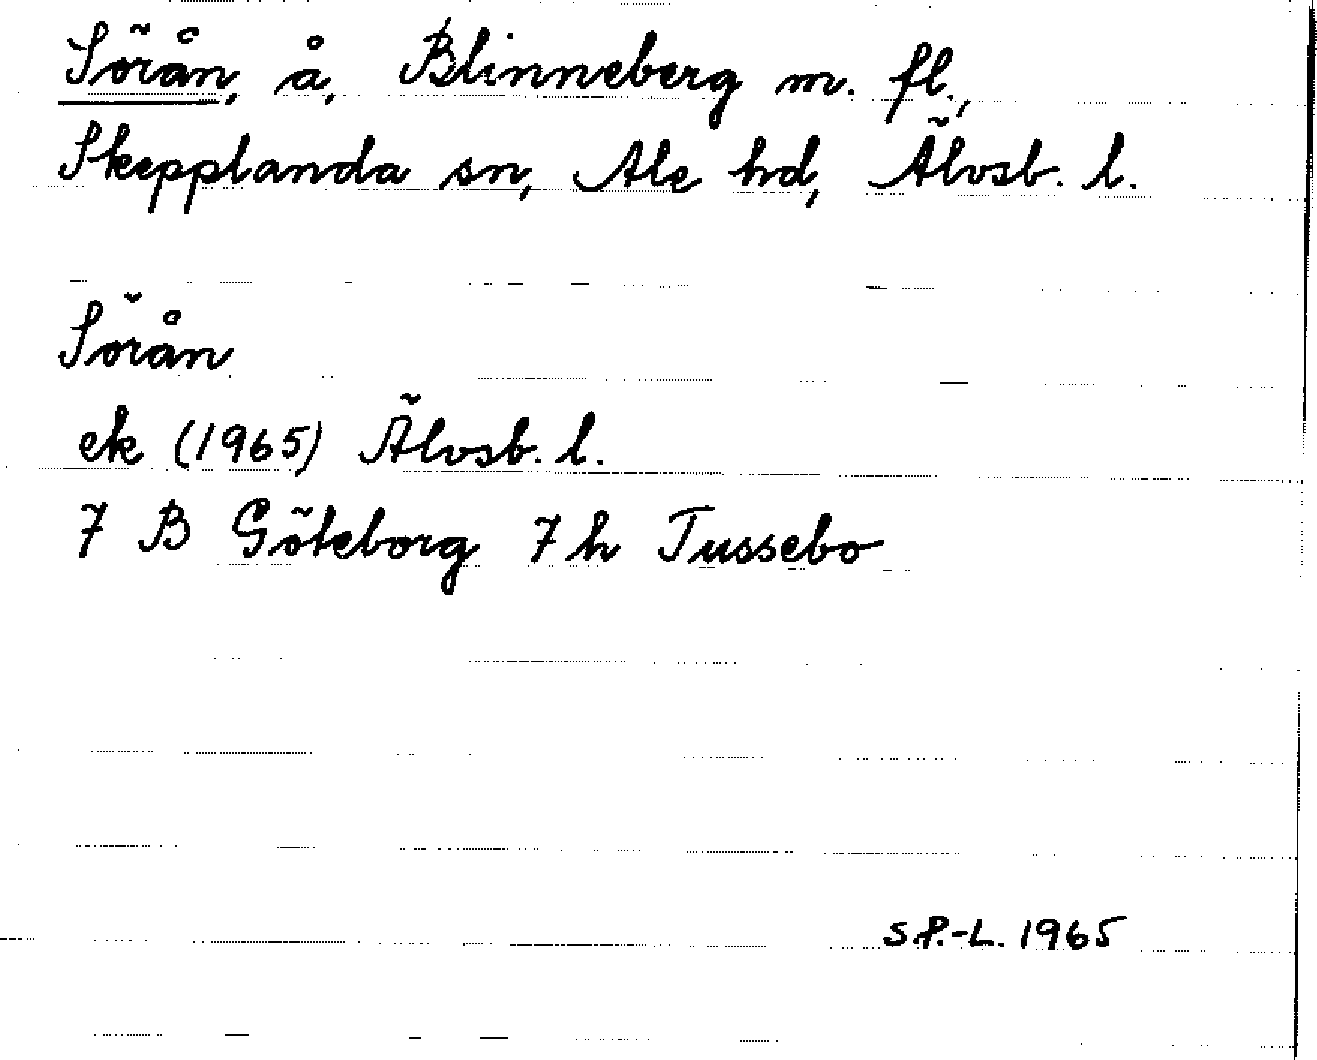 Sörån, å, Blinneberg m. fl.,
Skepplanda sn, Ale hd, Älvsb. l.
Sörån
ek (1965) Älvsb. l.
7 B Göteborg 7h Tussebo
S.P.-L. 1965